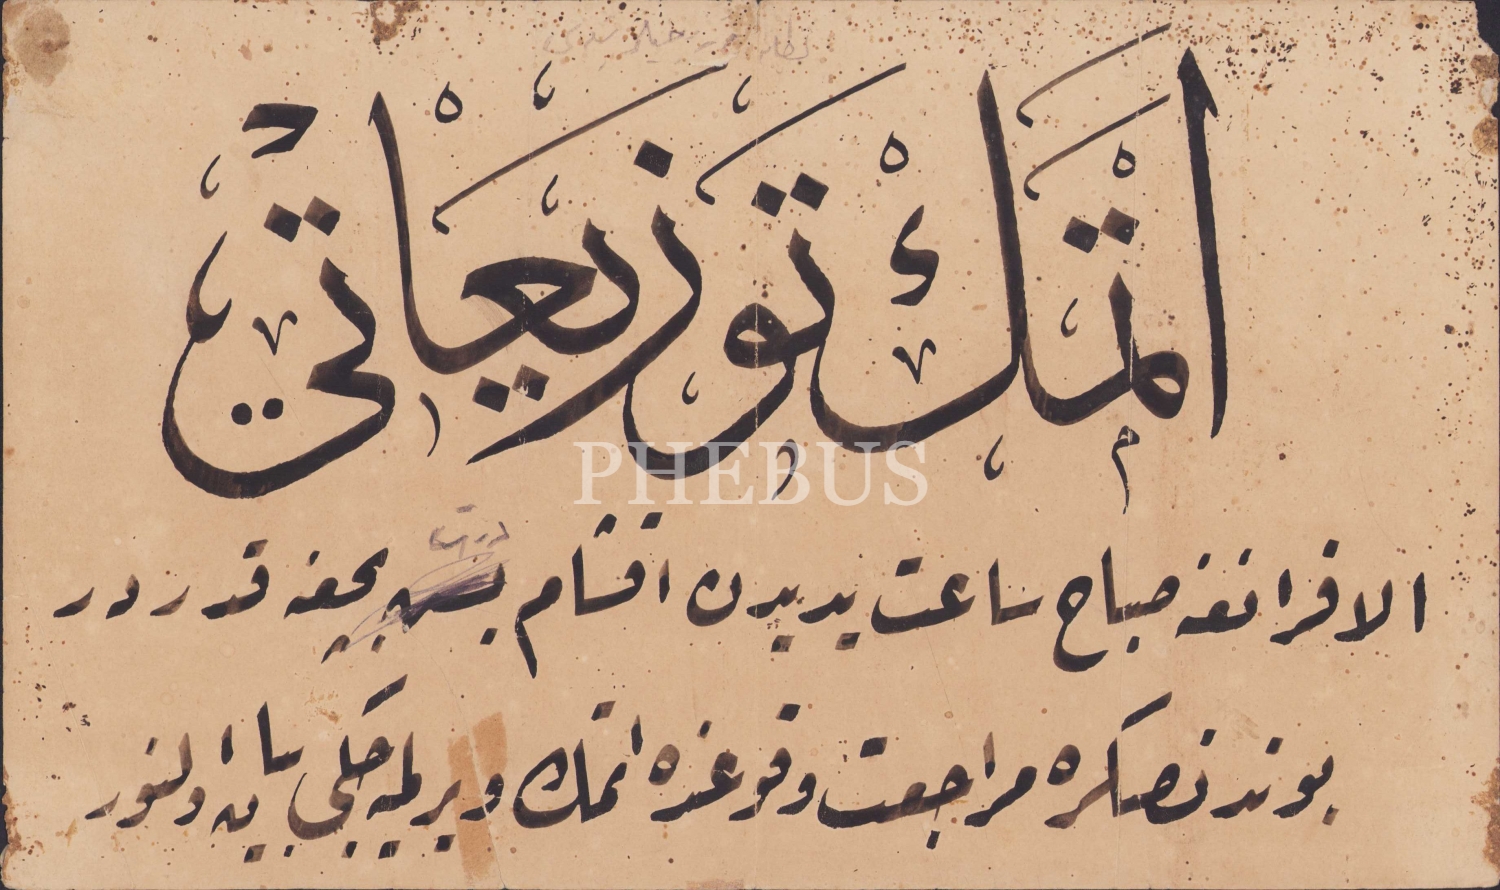 اتمك توزيعاتى
الافرانغه صباح ساعت يديدن اقشام بشه بحغه قدردر
بوندنصكره مراجعت وقوعنده اتمك ويريلميه جكى بيان اولنور
PHEBUS